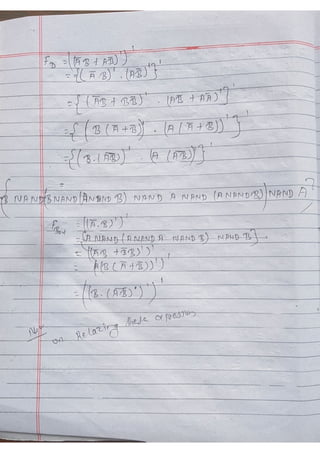 F_D = ((A̅B + AB̅)')'
= {(A̅B)' . (AB̅)'}'
= {(A̅B + BB̅)' . (AB̅ + AA̅)'}'
= {(B(A̅+B̅))' . (A(A̅+B̅))'}'
= {(B.(AB)')' . (A(AB)')'}'
NAND (A NAND B) NAND A NAND (A NAND B) NAND A
= ((A̅.B)')'
= {A NAND (A NAND A NAND B) NAND B}
= ((A̅B + B̅B)')'
= ((B(A̅+B̅))')'
= ((B.(AB)')')'
Now on Relacing these